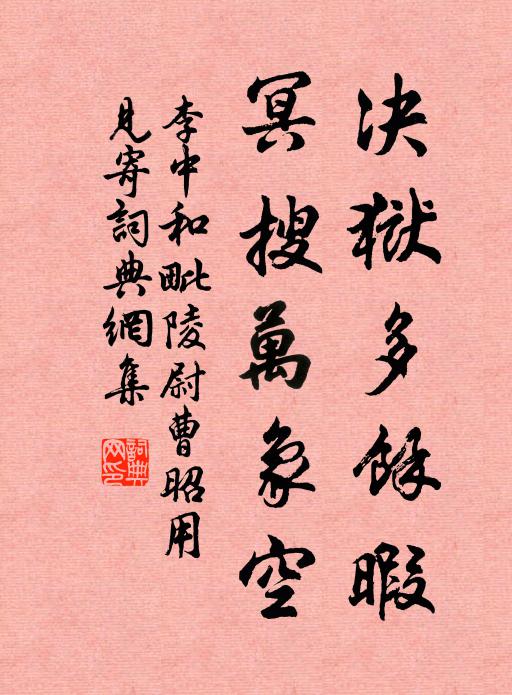 决狱多餘暇
冥搜萬象空
李中和毗陵尉曹昭用
見寄詞典網集
詞典網印